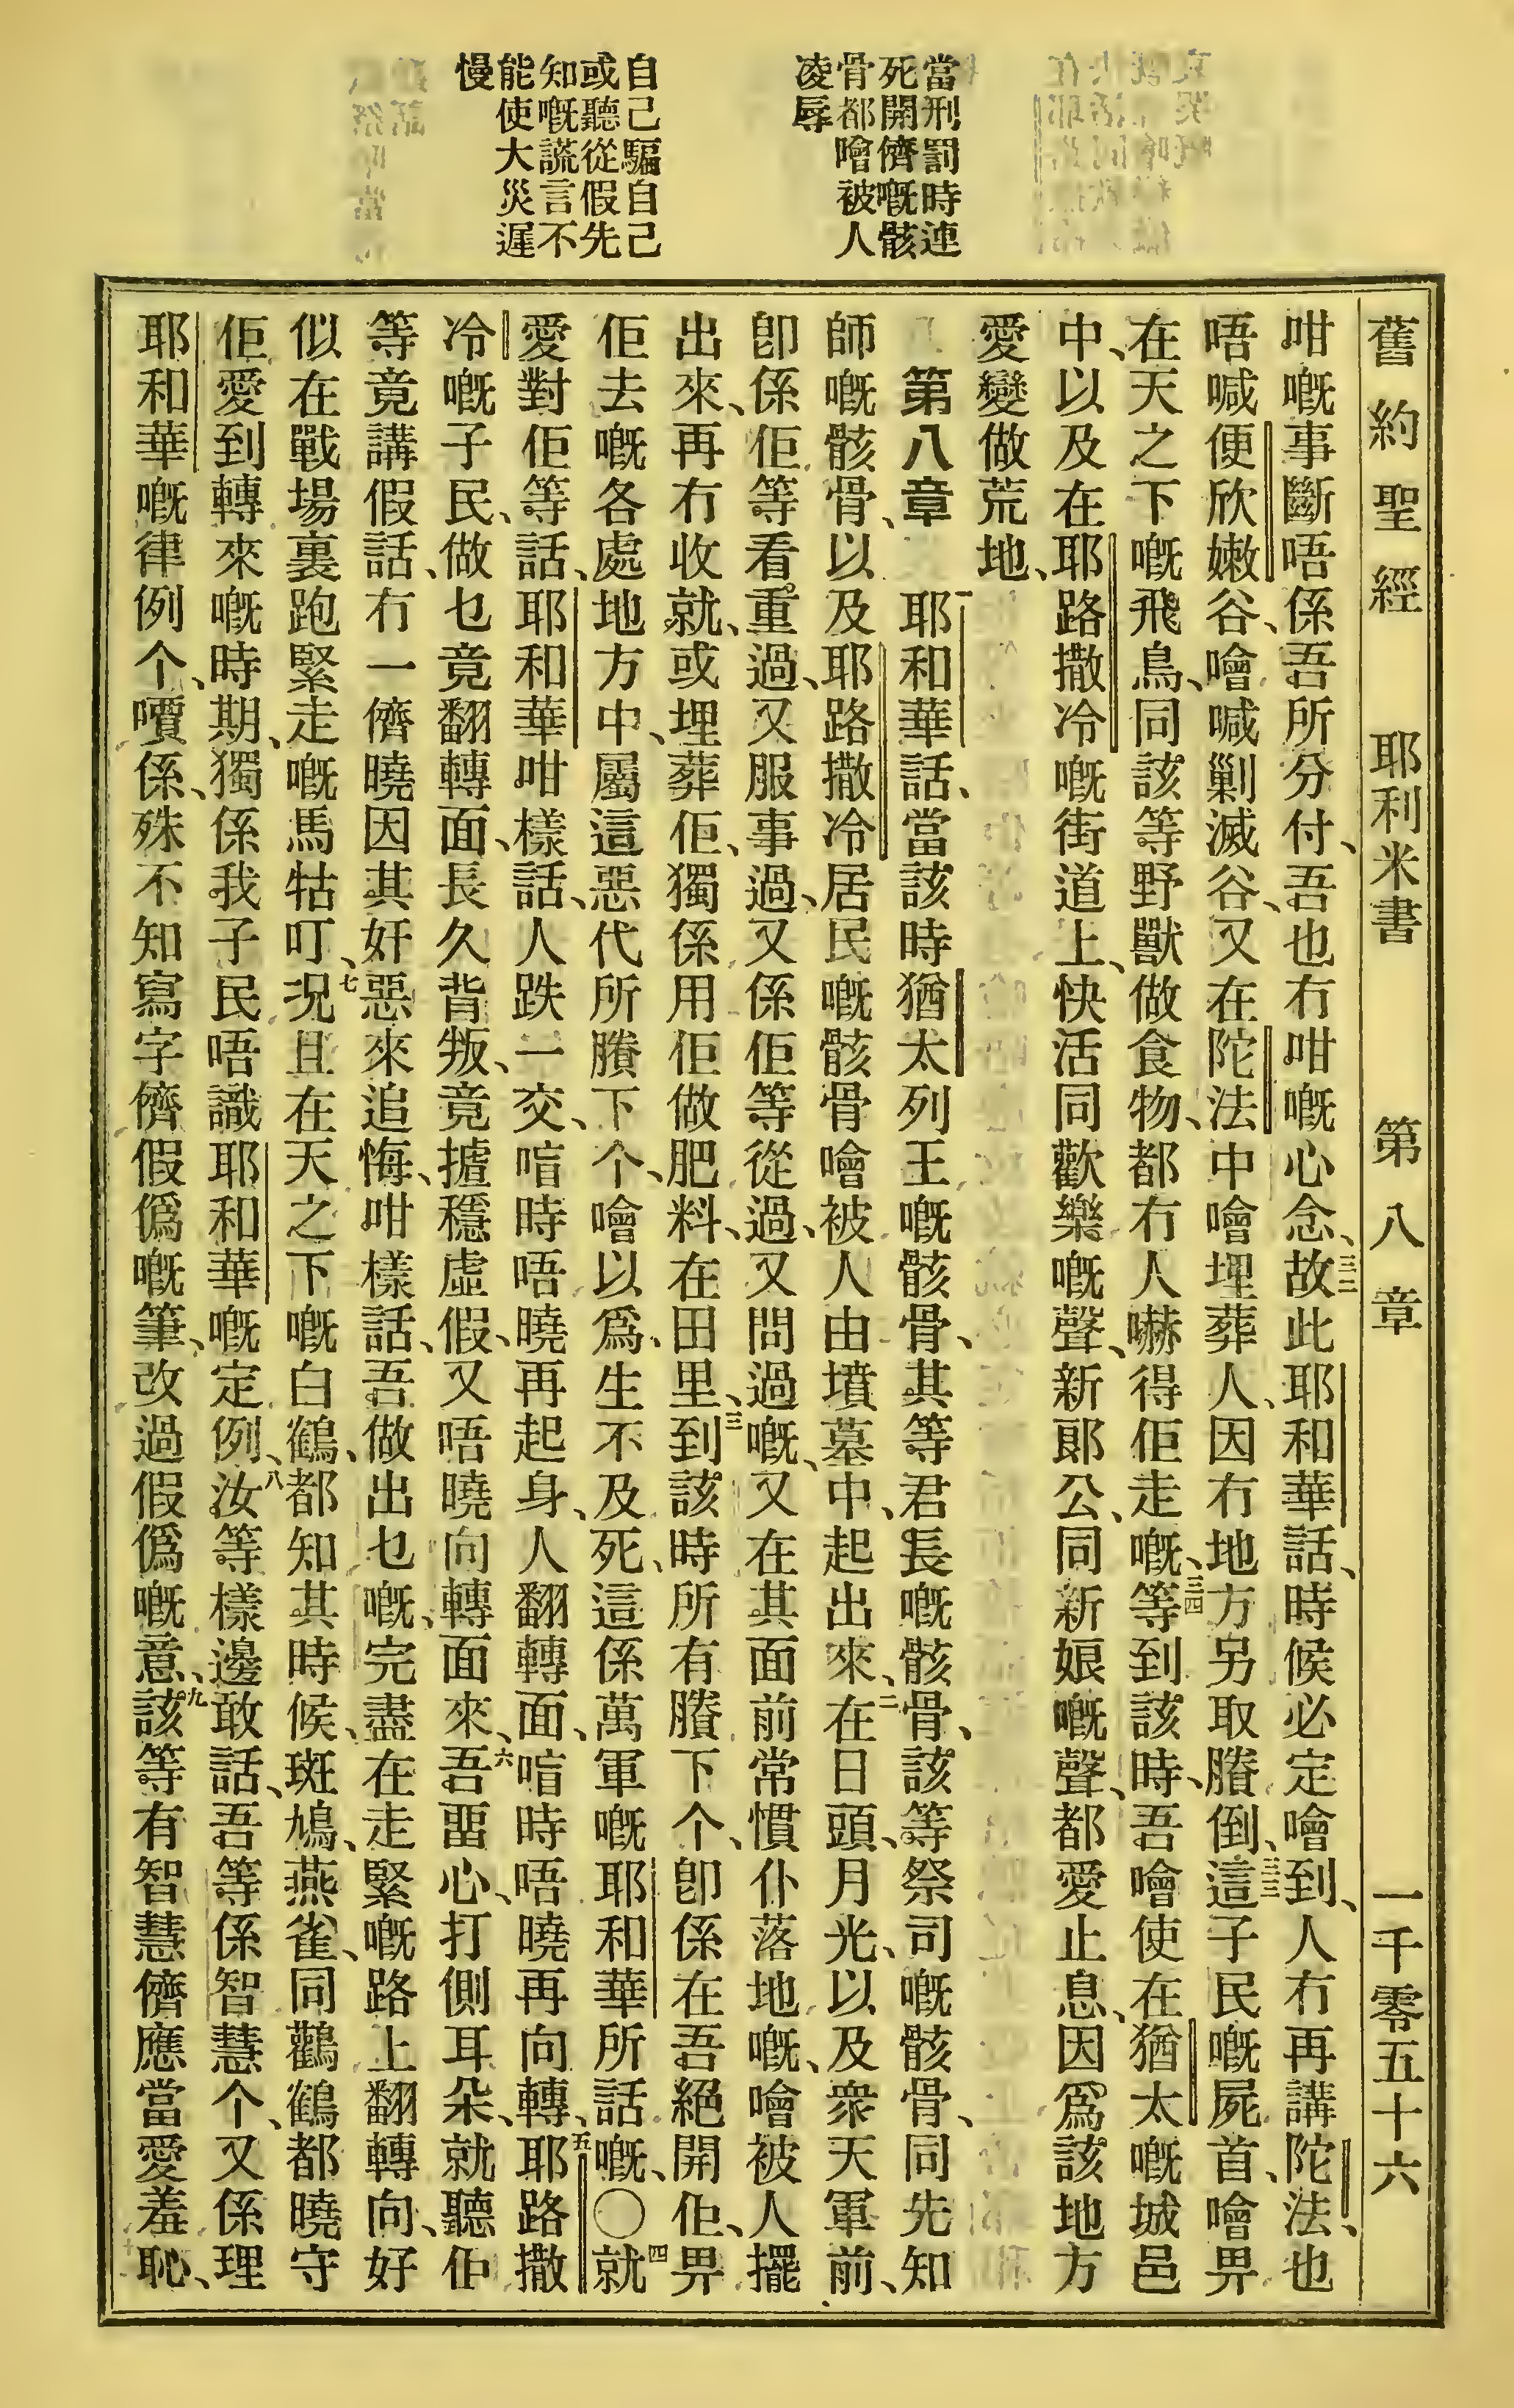 舊約聖經　耶利米書　第八章　一千零五十六
咁嘅事斷唔係吾所分付、吾也冇咁嘅心念、三二故此耶和華話、時候必定噲到、人冇再講陀法、也
唔喊便欣嫩谷、噲喊剿滅谷、又在陀法中噲埋葬人、因冇地方另取賸倒、三三這子民嘅屍首、噲畀
在天之下嘅飛鳥、同該等野獸做食物、都冇人嚇得佢走嘅、三四等到該時、吾噲使在猶太嘅城邑
中、以及在耶路撒冷嘅街道上、快活同歡樂嘅聲、新郎公、同新娘嘅聲、都愛止息、因爲該地方
愛變做荒地、
第八章　一耶和華話、當該時猶太列王嘅骸骨、其等君長嘅骸骨、該等祭司嘅骸骨、同先知
師嘅骸骨、以及耶路撒冷居民嘅骸骨噲被人由墳墓中、起出來、二在日頭、月光、以及衆天軍前、
卽係佢等看重過、又服事過、又係佢等從過、又問過嘅、又在其面前常慣仆落地嘅、噲被人擺
出來、再冇收就、或埋葬佢、獨係用佢做肥料、在田里、三到該時所有賸下个、卽係在吾絕開佢、畀
佢去嘅各處地方中、屬這惡代所賸下个、噲以爲生不及死、這係萬軍嘅耶和華所話嘅、〇四就
愛對佢等話、耶和華咁樣話、人跌一交、唁時唔曉再起身、人翻轉面、唁時唔曉再向轉、五耶路撒
冷嘅子民、做乜竟翻轉面、長久背叛、竟摣穩虛假、又唔曉向轉面來、六吾畱心、打側耳朵、就聽佢
等竟講假話、冇一儕曉因其奸惡來追悔、咁樣話、吾做出乜嘅、完盡在走緊嘅路上翻轉向、好
似在戰場裏跑緊走嘅馬牯叮、七況且在天之下嘅白鶴、都知其時候、斑鳩、燕雀、同鸛鶴都曉守
佢愛到轉來嘅時期、獨係我子民唔識耶和華嘅定例、八汝等樣邊敢話、吾等係智慧个、又係理
耶和華嘅律例个、嚽係、殊不知寫字儕假僞嘅筆、改過假僞嘅意、九該等有智慧儕應當愛羞恥、
當刑罰時連
死開儕嘅骸
骨都噲被人
凌辱
自己騙自己
或聽從假先
知嘅謊言不
能使大災遲
慢